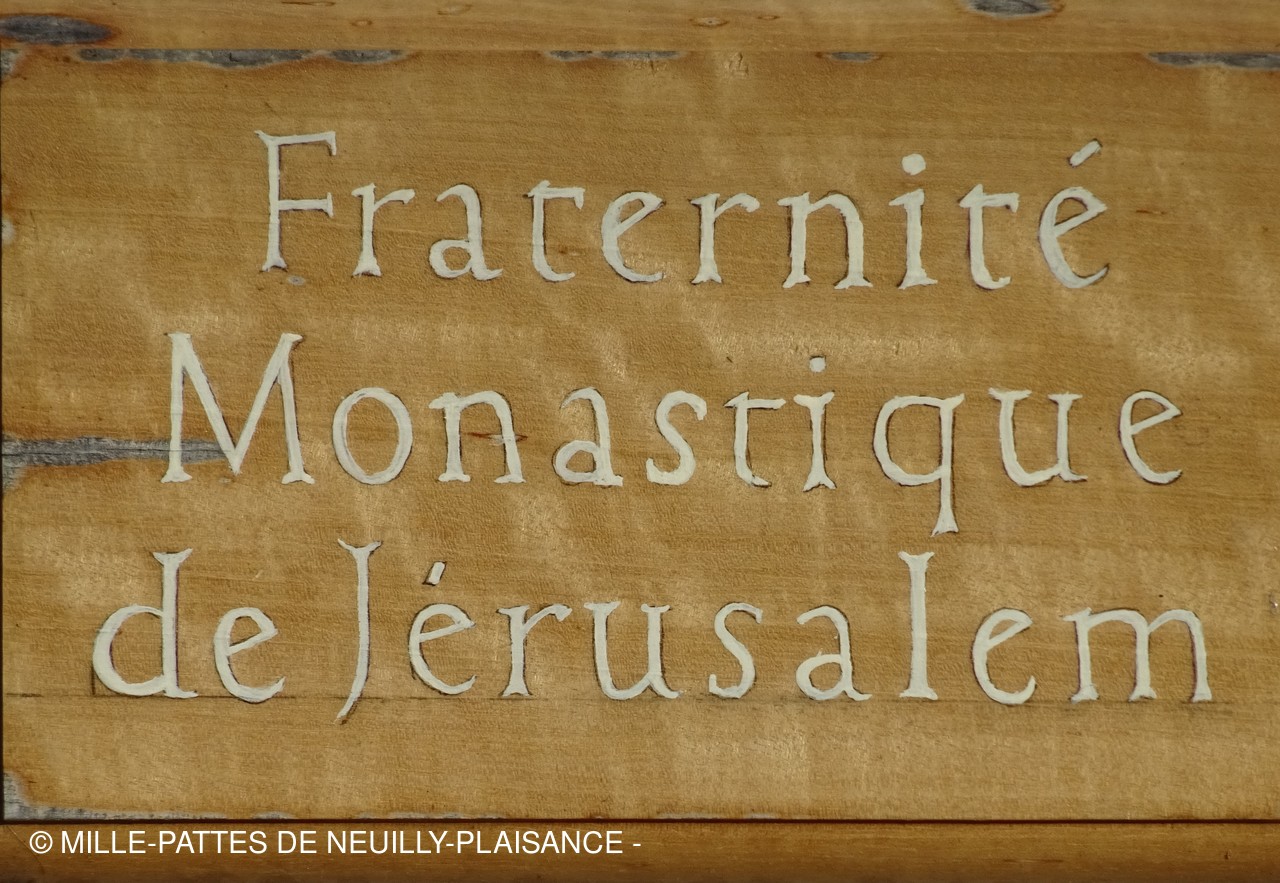 Fraternité
Monastique
de Jérusalem
© MILLE-PATTES DE NEUILLY-PLAISANCE -